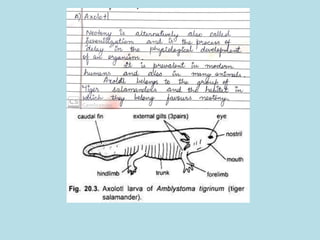 A) Axolotl
Neoteny is alternatively also called
Juvenilization and is the process of
delay in the physiological development
of an organism.
It is prevalent in modern
humans and also in many animals.
Axolotl belongs to the group of
Tiger salamanders and the habitat in
which they belong favours neoteny.
caudal fin
external gills (3pairs)
eye
nostril
mouth
hindlimb
trunk
forelimb
Fig. 20.3. Axolotl larva of Amblystoma tigrinum (tiger
salamander).